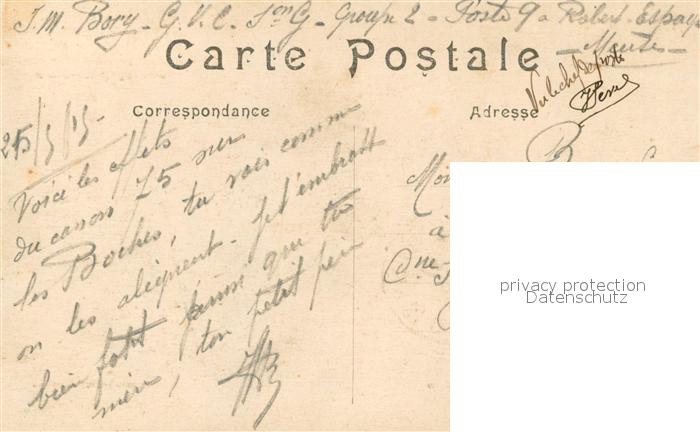 J. M. Bory - G. V. C. Son G - Groupe 2 - Poste 9 à Robert-Espagne
Carte Postale - Meuse -
Vu le chef de poste
Correspondance
Adresse
25/5/15 -
Voici les effets
du canon 75 sur
les Boches, tu vois comme
on les aligne - Je t'embrasse
bien fort ainsi que ta
mère, ton petit
JB
B
Mon
à
privacy protection
Datenschutz